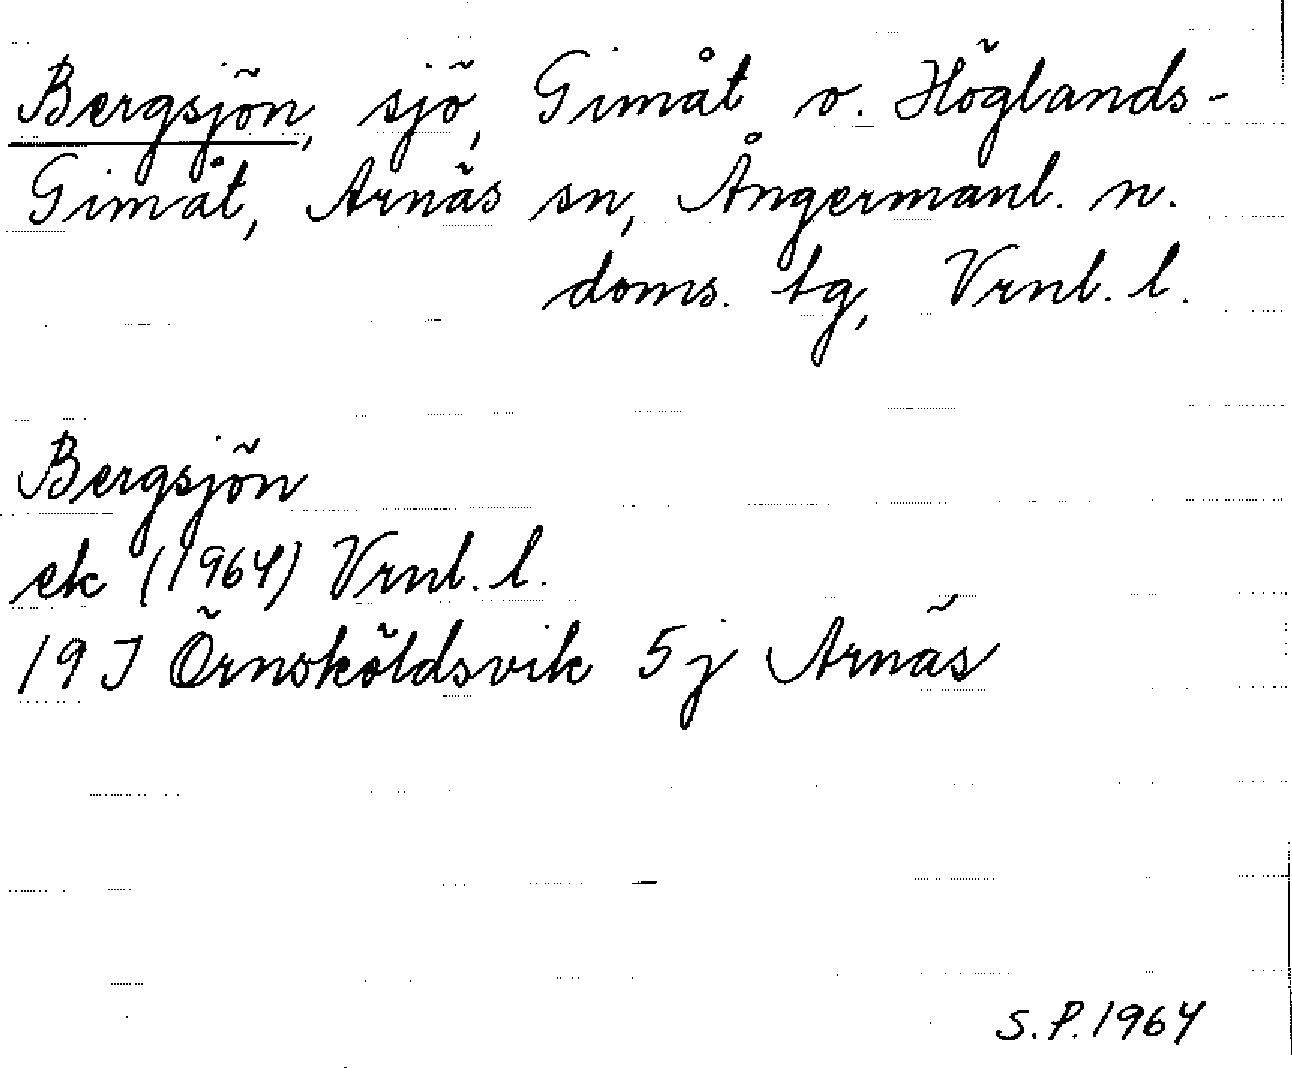 Bergsjön, sjö, Gimåt o. Höglands-
Gimåt, Arnäs sn, Ångermanl. n.
doms. tg, Vrnl. l.
Bergsjön
ek (1964) Vrnl. l.
19 J Örnsköldsvik 5 j Arnäs
S.P. 1964